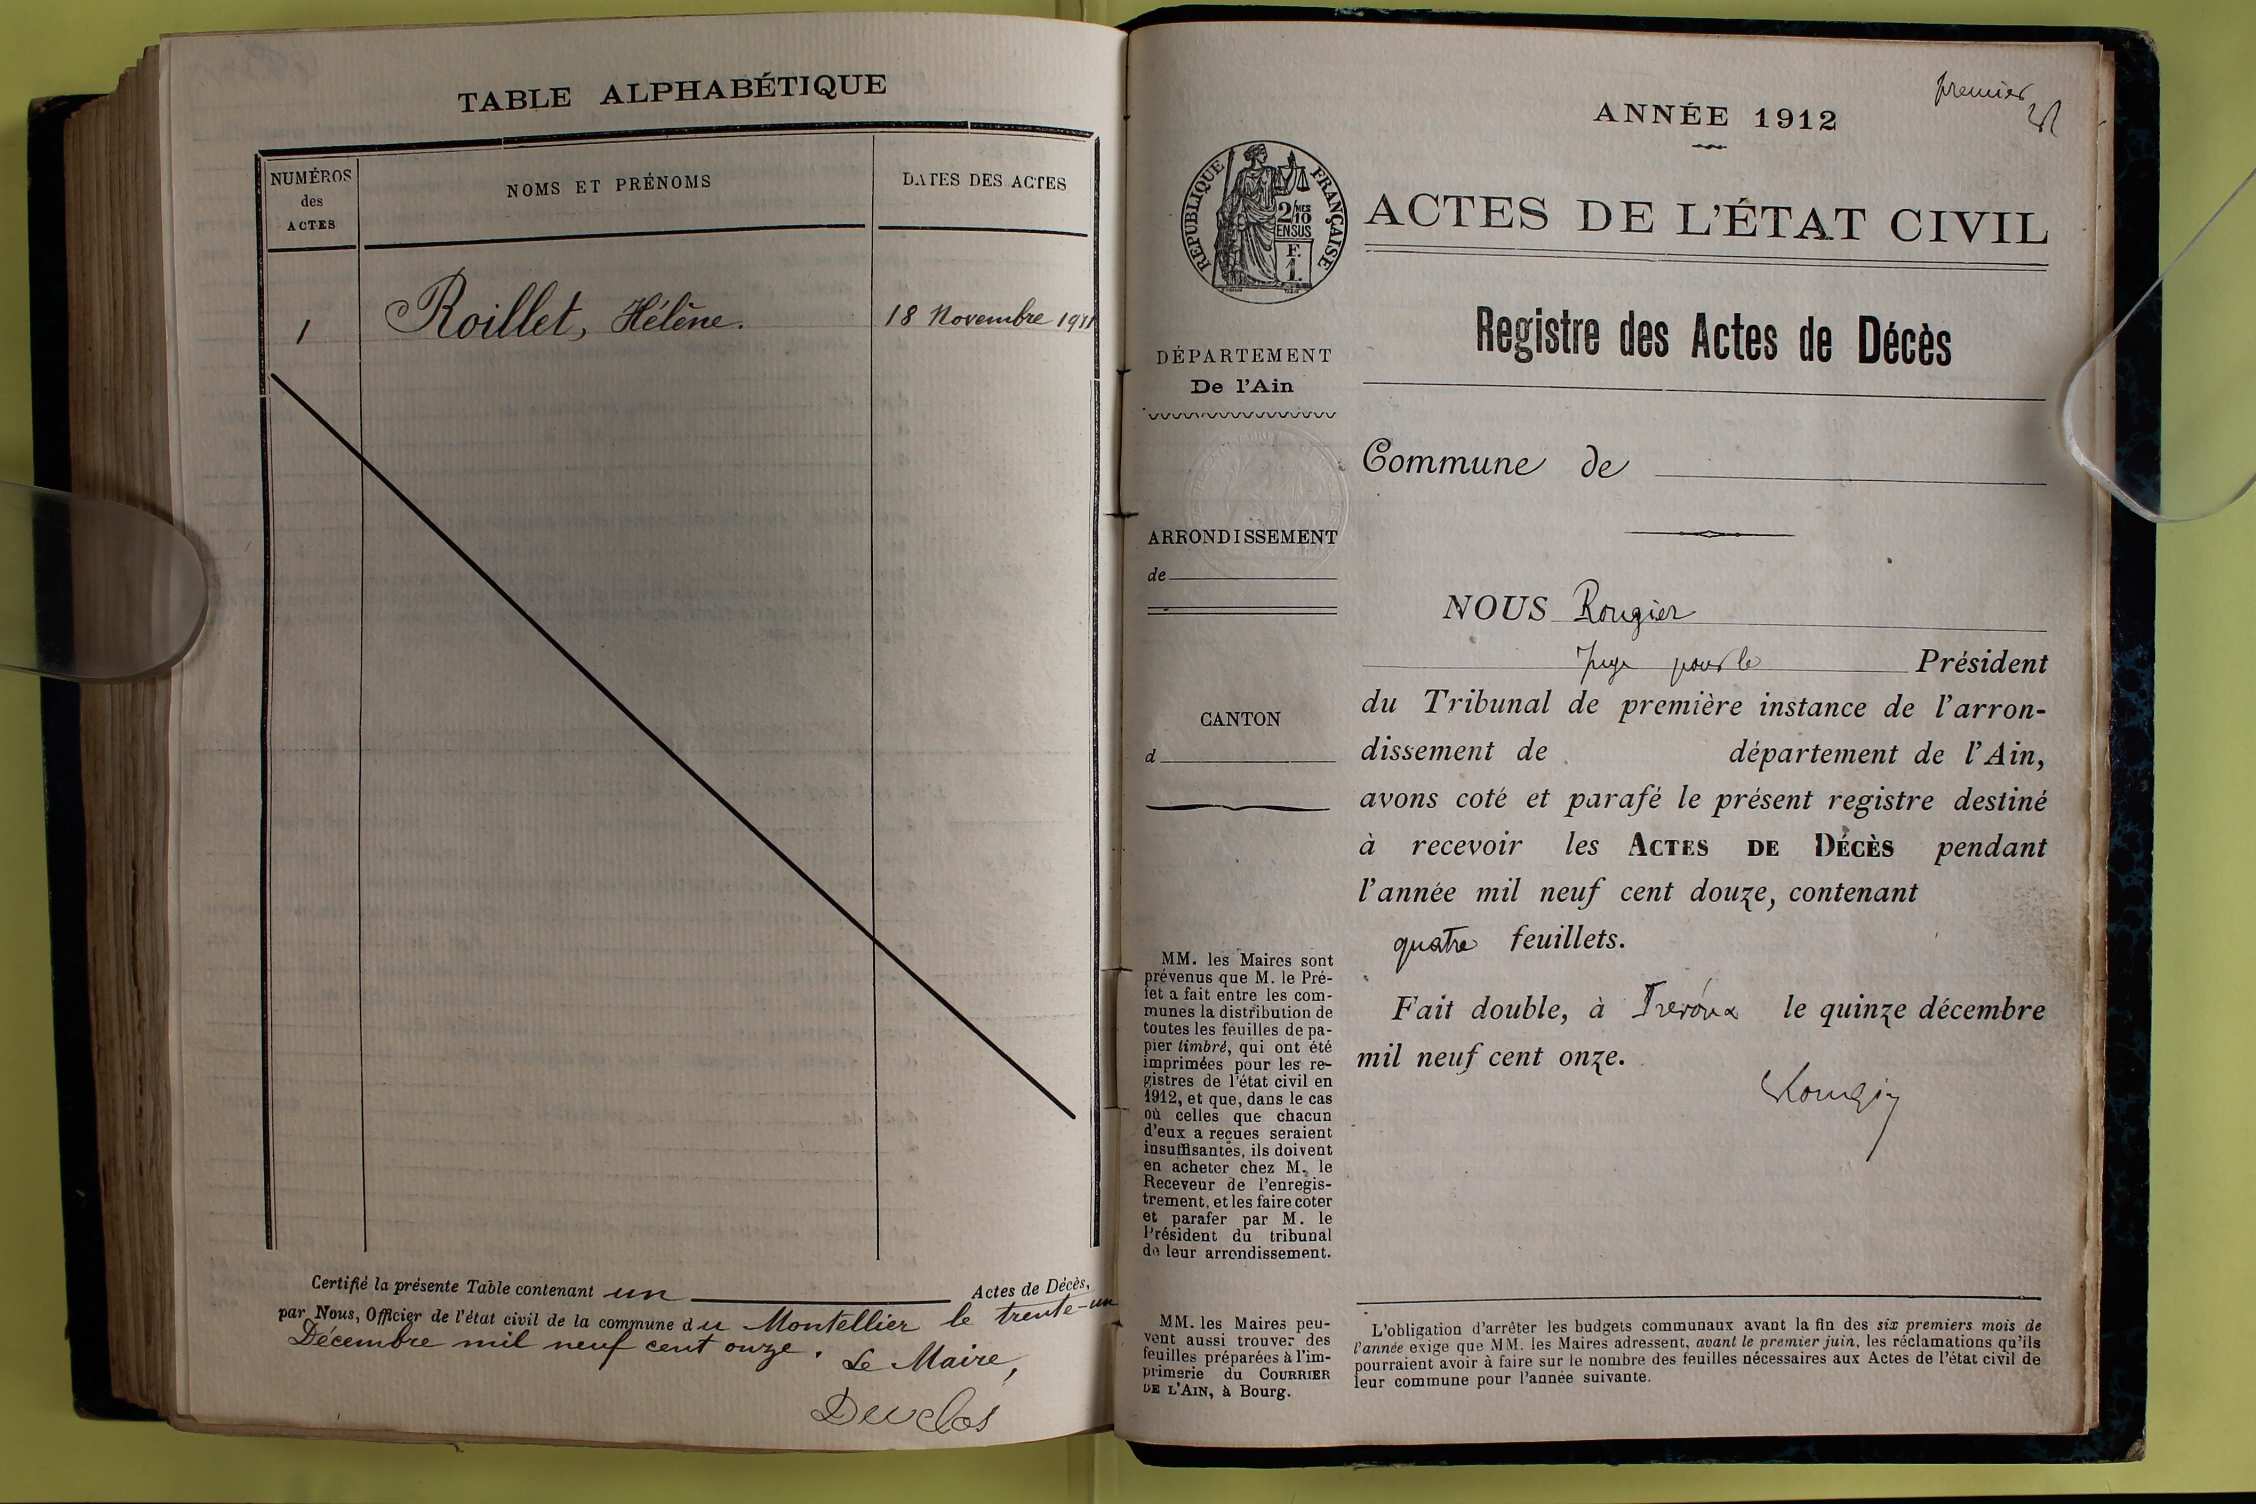 TABLE ALPHABÉTIQUE
NUMÉROS
des
ACTES
NOMS ET PRÉNOMS
DATES DES ACTES
1
Roillet, Hélène.
18 Novembre 1911
Certifié la présente Table contenant un Actes de Décès,
par Nous, Officier de l'état civil de la commune du Montellier le trente-un
Décembre mil neuf cent onze.
Le Maire,
Duclos
premier
ANNÉE 1912
RÉPUBLIQUE FRANÇAISE
2/10MES
EN SUS
F.
1.
ACTES DE L'ÉTAT CIVIL
Registre des Actes de Décès
DÉPARTEMENT
De l'Ain
Commune de
ARRONDISSEMENT
de
CANTON
d
NOUS Rougier
Juge pour le Président
du Tribunal de première instance de l'arron-
dissement de département de l'Ain,
avons coté et parafé le présent registre destiné
à recevoir les ACTES DE DÉCÈS pendant
l'année mil neuf cent douze, contenant
quatre feuillets.
Fait double, à Trévoux le quinze décembre
mil neuf cent onze.
Rougier
MM. les Maires sont
prévenus que M. le Pré-
fet a fait entre les com-
munes la distribution de
toutes les feuilles de pa-
pier timbré, qui ont été
imprimées pour les re-
gistres de l'état civil en
1912, et que, dans le cas
où celles que chacun
d'eux a reçues seraient
insuffisantes, ils doivent
en acheter chez M. le
Receveur de l'enregis-
trement, et les faire coter
et parafer par M. le
Président du tribunal
de leur arrondissement.
MM. les Maires peu-
vent aussi trouver des
feuilles préparées à l'im-
primerie du COURRIER
DE L'AIN, à Bourg.
L'obligation d'arrêter les budgets communaux avant la fin des six premiers mois de
l'année exige que MM. les Maires adressent, avant le premier juin, les réclamations qu'ils
pourraient avoir à faire sur le nombre des feuilles nécessaires aux Actes de l'état civil de
leur commune pour l'année suivante.